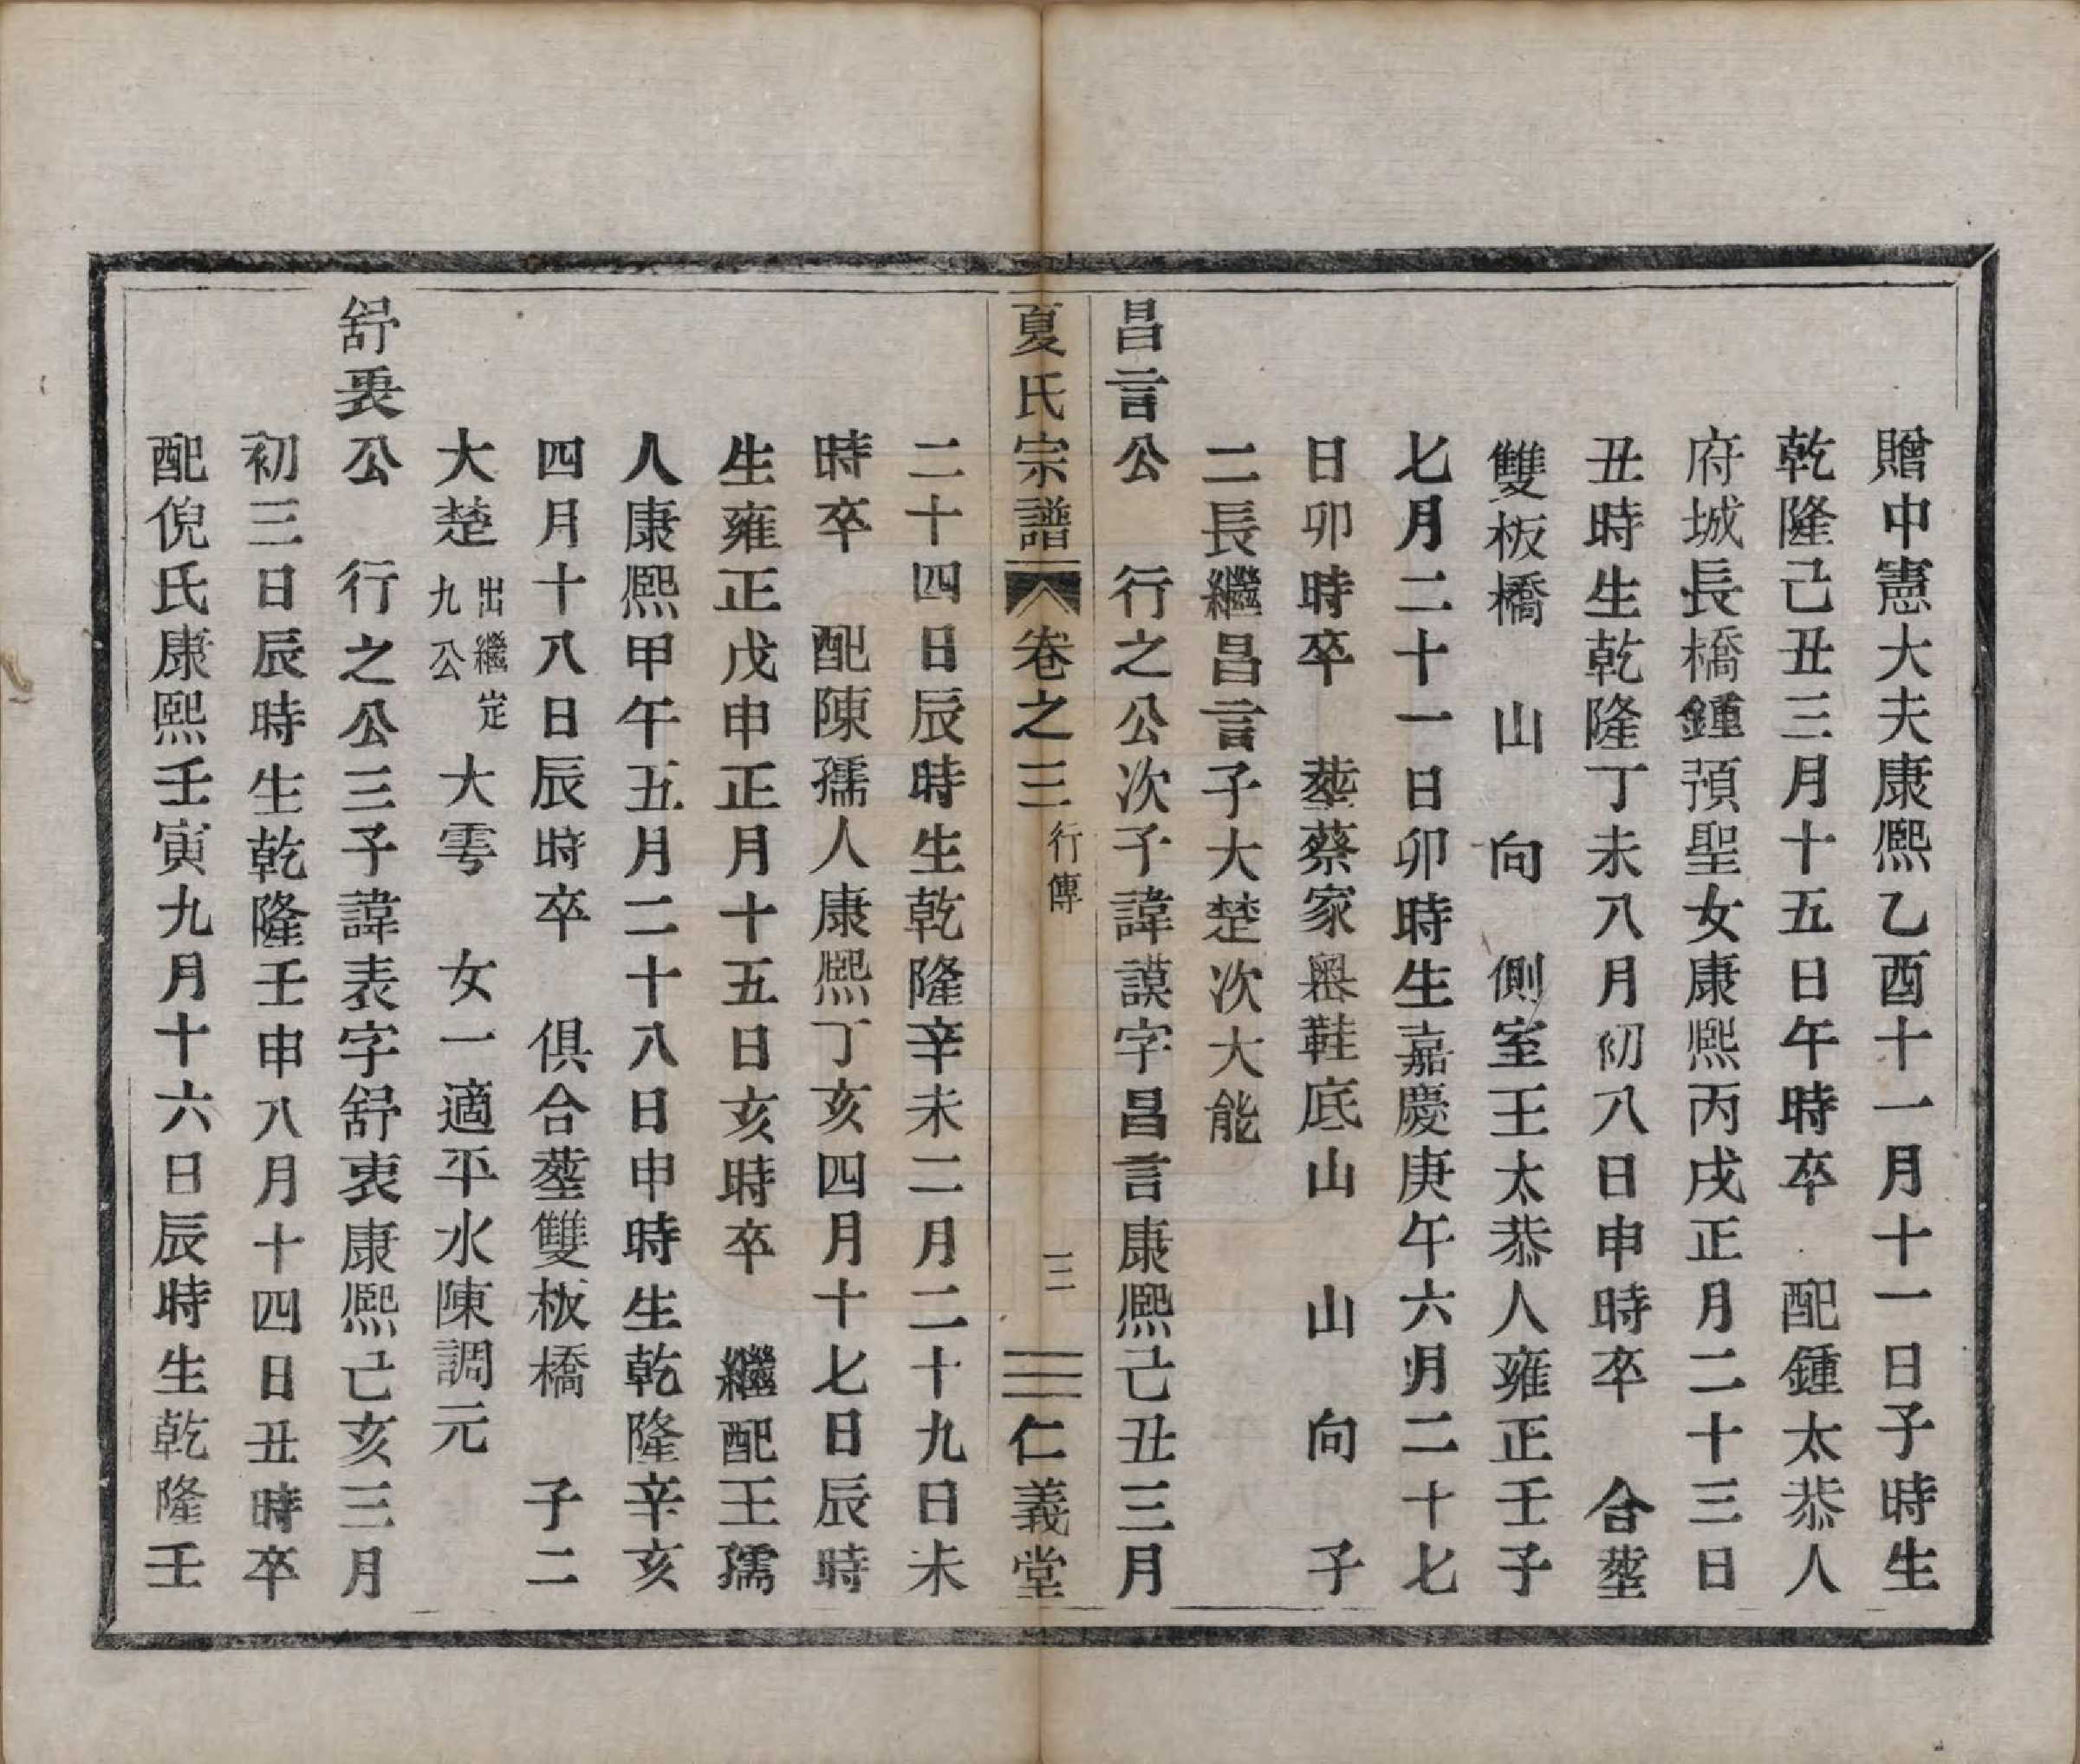 贈中憲大夫康熙乙酉十一月十一日子時生
乾隆己丑三月十五日午時卒　配鍾太恭人
府城長橋鍾預聖女康熙丙戌正月二十三日
丑時生乾隆丁未八月初八日申時卒　合塟
雙板橋　山　向　側室王太恭人雍正壬子
七月二十一日卯時生嘉慶庚午六月二十七
日卯時卒　塟蔡家奧鞋底山　山　向　子
二長繼昌言子大楚次大能
昌言公　行之公次子諱謨字昌言康熙己丑三月
夏氏宗譜　卷之三　行傳　三　仁義堂
二十四日辰時生乾隆辛未二月二十九日未
時卒　配陳孺人康熙丁亥四月十七日辰時
生雍正戊申正月十五日亥時卒　繼配王孺
人康熙甲午五月二十八日申時生乾隆辛亥
四月十八日辰時卒　俱合塟雙板橋　子二
大楚出繼定九公　大雩　女一適平水陳調元
舒衷公　行之公三子諱表字舒衷康熙己亥三月
初三日辰時生乾隆壬申八月十四日丑時卒
配倪氏康熙壬寅九月十六日辰時生乾隆壬